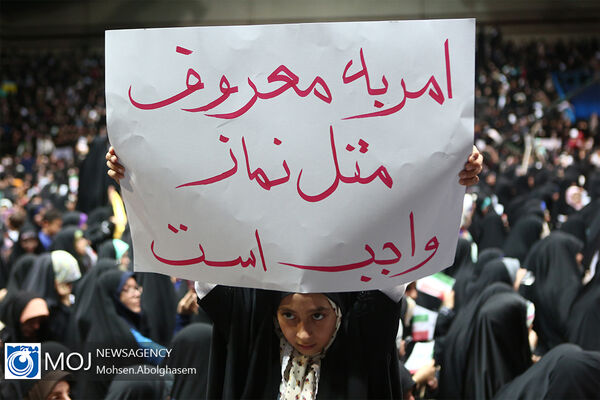 امر به معروف
مثل نماز
واجب است
MOJ NEWSAGENCY
Mohsen.Abolghasem